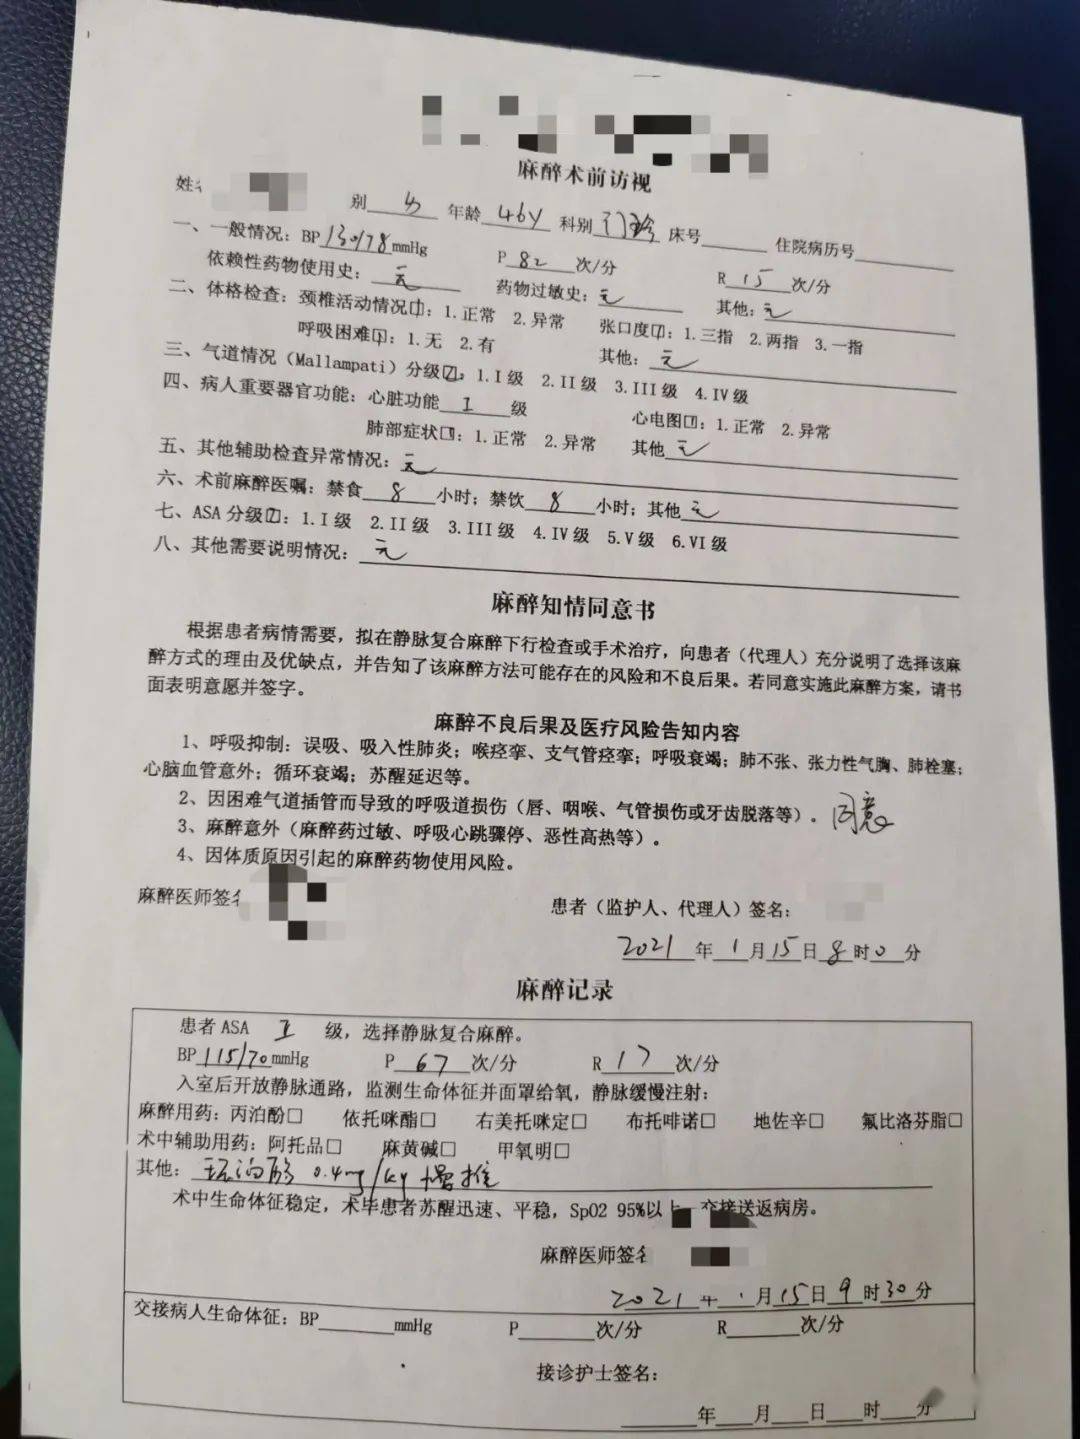 麻醉术前访视
姓名 别 女 年龄 46y 科别 门诊 床号 住院病历号
一、一般情况：BP 130/78 mmHg P 82 次/分 R 15 次/分
依赖性药物使用史：无 药物过敏史：无 其他：无
二、体格检查：颈椎活动情况1：1.正常 2.异常 张口度1：1.三指 2.两指 3.一指
呼吸困难1：1.无 2.有 其他：无
三、气道情况（Mallampati）分级2：1.I级 2.II级 3.III级 4.IV级
四、病人重要器官功能：心脏功能 I 级 心电图1：1.正常 2.异常
肺部症状1：1.正常 2.异常 其他 无
五、其他辅助检查异常情况：无
六、术前麻醉医嘱：禁食 8 小时；禁饮 8 小时；其他 无
七、ASA分级：1.I级 2.II级 3.III级 4.IV级 5.V级 6.VI级
八、其他需要说明情况：无
麻醉知情同意书
根据患者病情需要，拟在静脉复合麻醉下行检查或手术治疗，向患者（代理人）充分说明了选择该麻
醉方式的理由及优缺点，并告知了该麻醉方法可能存在的风险和不良后果。若同意实施此麻醉方案，请书
面表明意愿并签字。
麻醉不良后果及医疗风险告知内容
1、呼吸抑制：误吸、吸入性肺炎；喉痉挛、支气管痉挛；呼吸衰竭；肺不张、张力性气胸、肺栓塞；
心脑血管意外；循环衰竭；苏醒延迟等。
2、因困难气道插管而导致的呼吸道损伤（唇、咽喉、气管损伤或牙齿脱落等）。同意
3、麻醉意外（麻醉药过敏、呼吸心跳骤停、恶性高热等）。
4、因体质原因引起的麻醉药物使用风险。
麻醉医师签名 患者（监护人、代理人）签名：
2021 年 1 月 15 日 8 时 0 分
麻醉记录
患者ASA 级，选择静脉复合麻醉。
BP 115/70 mmHg P 67 次/分 R 17 次/分
入室后开放静脉通路，监测生命体征并面罩给氧，静脉缓慢注射：
麻醉用药：丙泊酚□ 依托咪酯□ 右美托咪定□ 布托啡诺□ 地佐辛□ 氟比洛芬脂□
术中辅助用药：阿托品□ 麻黄碱□ 甲氧明□
其他：环泊酚 0.4mg/kg 慢推
术中生命体征稳定，术毕患者苏醒迅速、平稳，SpO2 95%以上 交接送返病房。
麻醉医师签名
2021 年 1 月 15 日 9 时 30 分
交接病人生命体征：BP mmHg P 次/分 R 次/分
接诊护士签名：
年 月 日 时 分